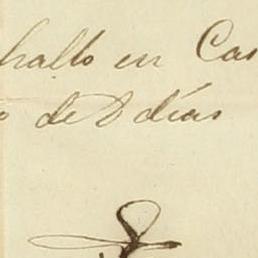 hallo en Cas
o de 8 días